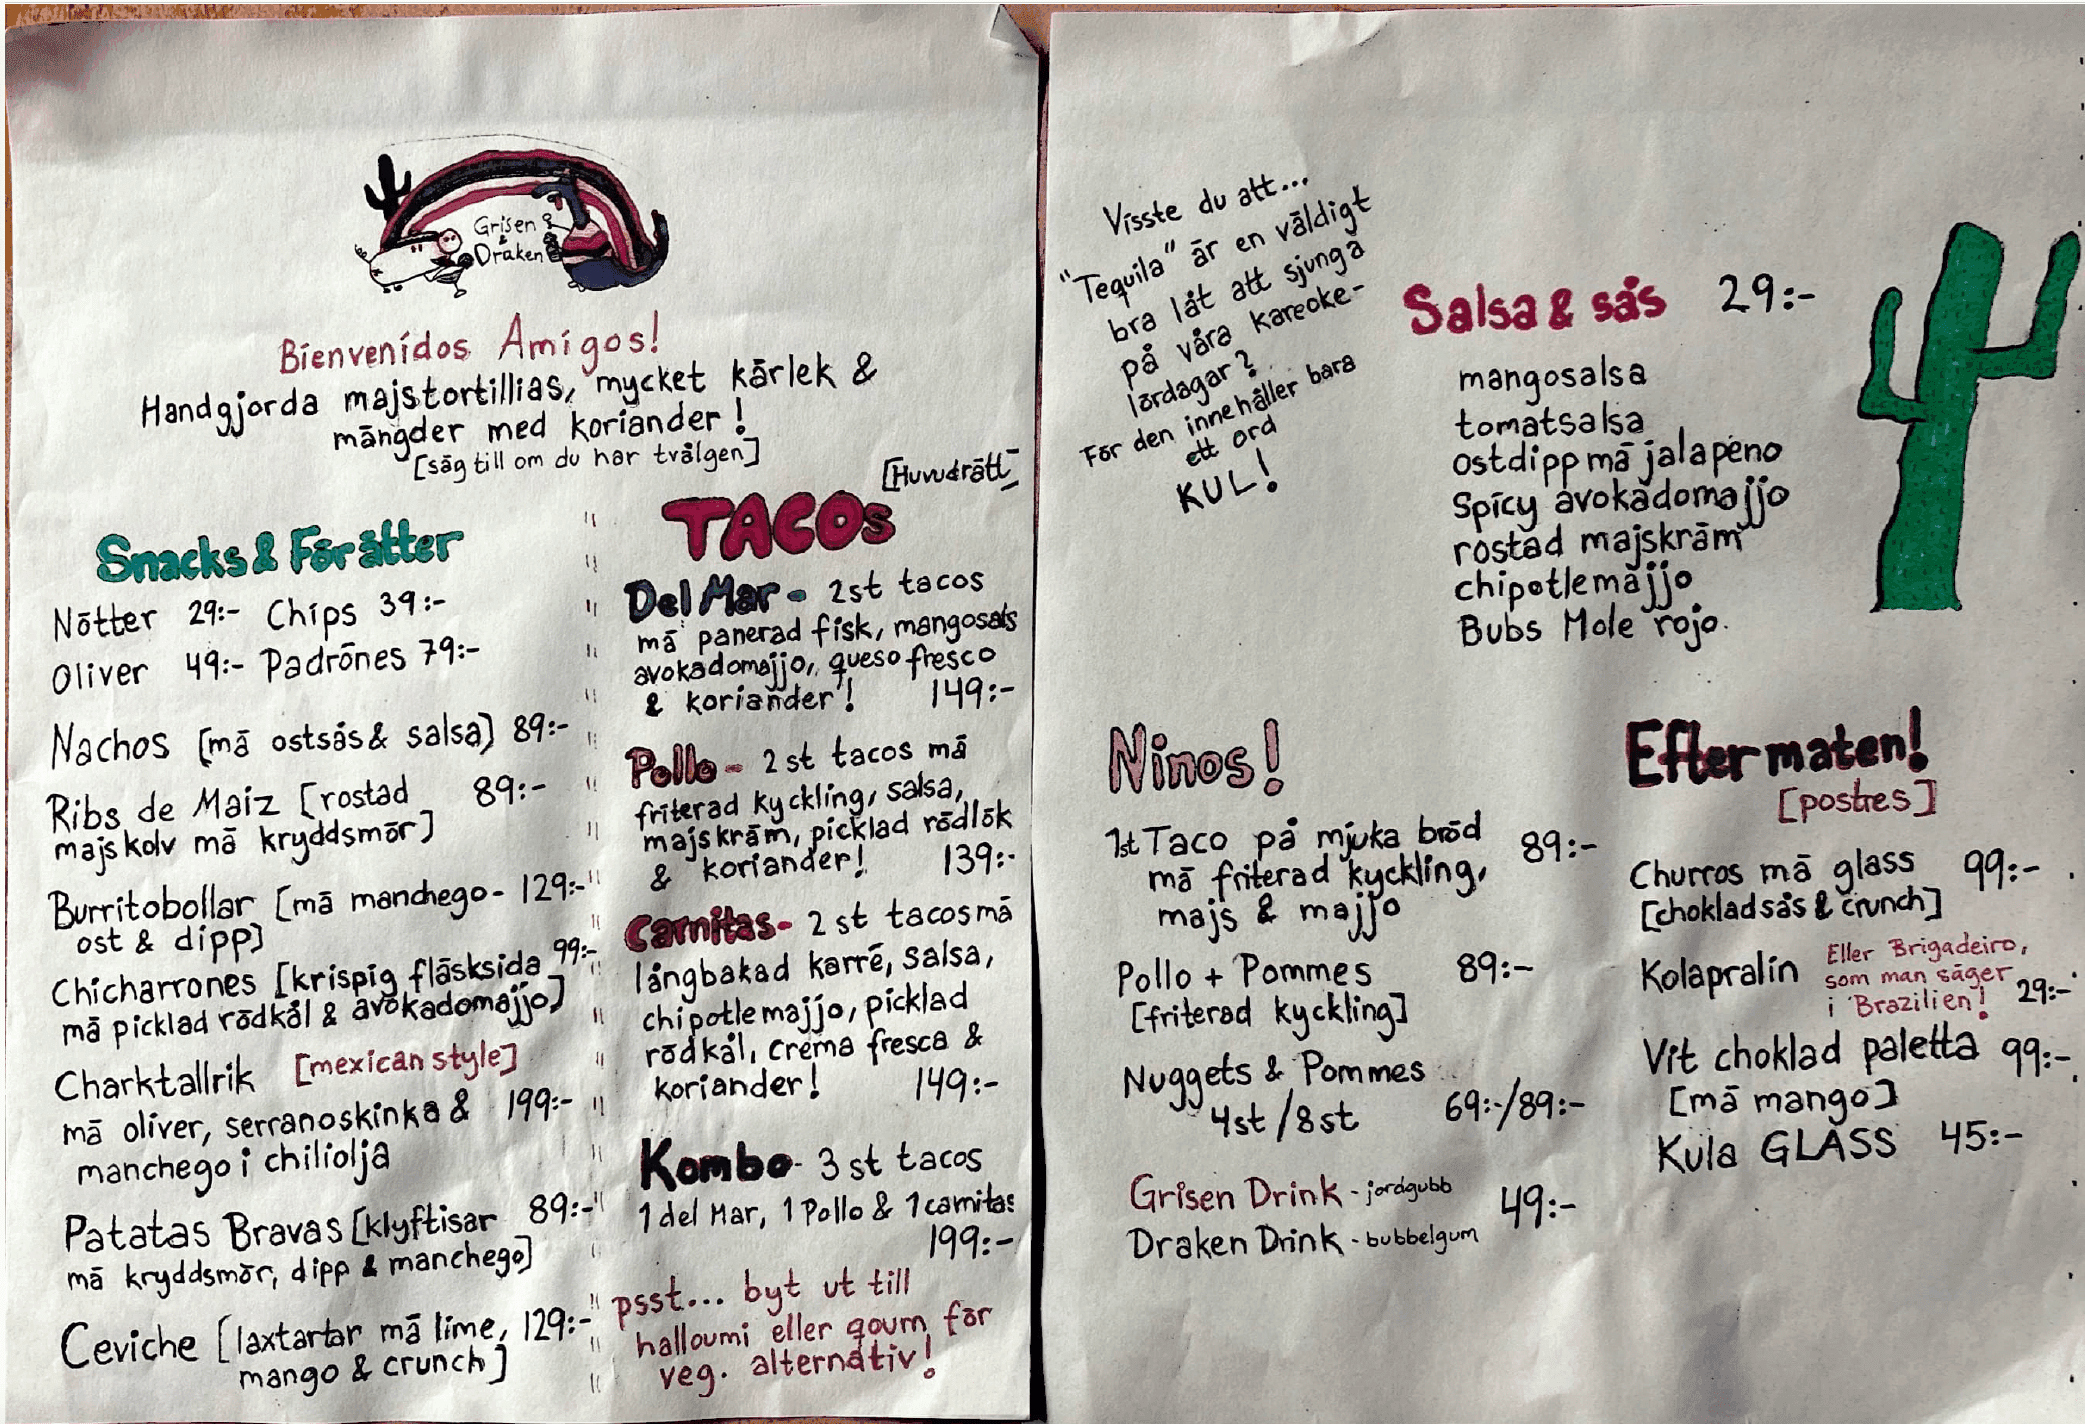 Grisen
&
Draken
Bienvenidos Amigos!
Handgjorda majstortillias, mycket kärlek &
mängder med koriander!
[säg till om du har tvålgen]
Snacks & Förätter
Nötter 29:- Chips 39:-
Oliver 49:- Padrönes 79:-
Nachos [mä ostsås & salsa] 89:-
Ribs de Maiz [rostad 89:-
majskolv mä kryddsmör]
Burritobollar [mä manchego- 129:-
ost & dipp]
Chicharrones [krispig fläsksida 99:-
mä picklad rödkål & avokadomajjo]
Charktallrik [mexican style]
mä oliver, serranoskinka & 199:-
manchego i chiliolja
Patatas Bravas [klyftisar 89:-
mä kryddsmör, dipp & manchego]
Ceviche [laxtartar mä lime, 129:-
mango & crunch]
[Huvudrätt]
TACOs
Del Mar - 2st tacos
mä panerad fisk, mangosals
avokadomajjo, queso fresco
& koriander! 149:-
Pollo - 2 st tacos mä
friterad kyckling, salsa,
majskräm, picklad rödlök
& koriander! 139:-
Carnitas - 2 st tacos mä
långbakad karré, salsa,
chipotlemajjo, picklad
rödkål, crema fresca &
koriander! 149:-
Kombo - 3 st tacos
1 del Mar, 1 Pollo & 1 carnitas
199:-
psst... byt ut till
halloumi eller qourn för
veg. alternativ!
Visste du att...
"Tequila" är en väldigt
bra låt att sjunga
på våra kareoke-
lördagar?
För den innehåller bara
ett ord
KUL!
Salsa & sås 29:-
mangosalsa
tomatsalsa
ostdipp mä jalapéno
Spicy avokadomajjo
rostad majskräm
chipotlemajjo
Bubs Mole rojo.
Ninos!
1st Taco på mjuka bröd 89:-
mä friterad kyckling,
majs & majjo
Pollo + Pommes 89:-
[friterad kyckling]
Nuggets & Pommes
4st / 8st 69:-/89:-
Grisen Drink - jordgubb 49:-
Draken Drink - bubbelgum
Efter maten!
[postres]
Churros mä glass 99:-
[chokladsås & crunch]
Kolapralin Eller Brigadeiro,
som man säger
i Brazilien! 29:-
Vit choklad paletta 99:-
[mä mango]
Kula GLASS 45:-